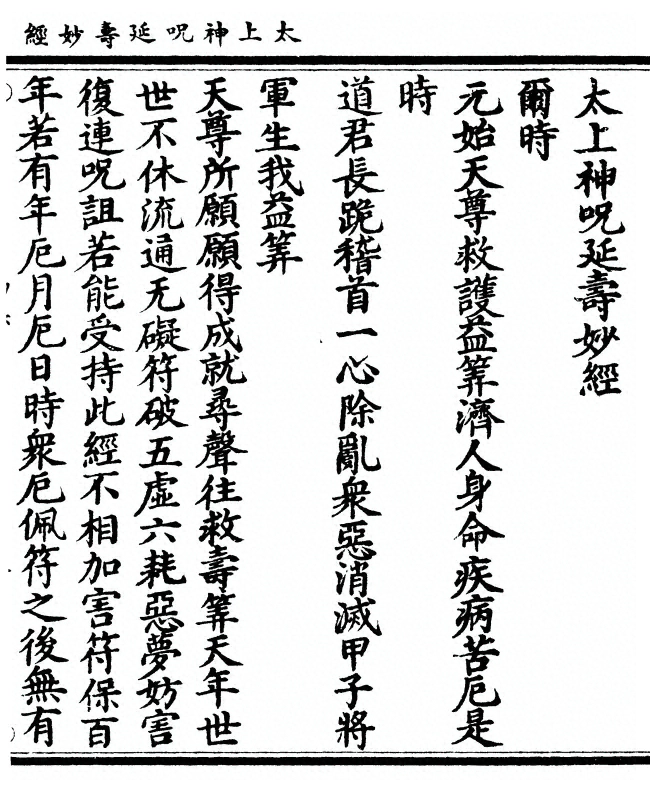 太上神呪延壽妙經
太上神呪延壽妙經
爾時
元始天尊救護益筭濟人身命疾病苦厄是
時
道君長跪稽首一心除亂衆惡消滅甲子將
軍生我益筭
天尊所願願得成就尋聲往救壽筭天年世
世不休流通无礙符破五虛六耗惡夢妨害
復連呪詛若能受持此經不相加害符保百
年若有年厄月厄日時衆厄佩符之後無有